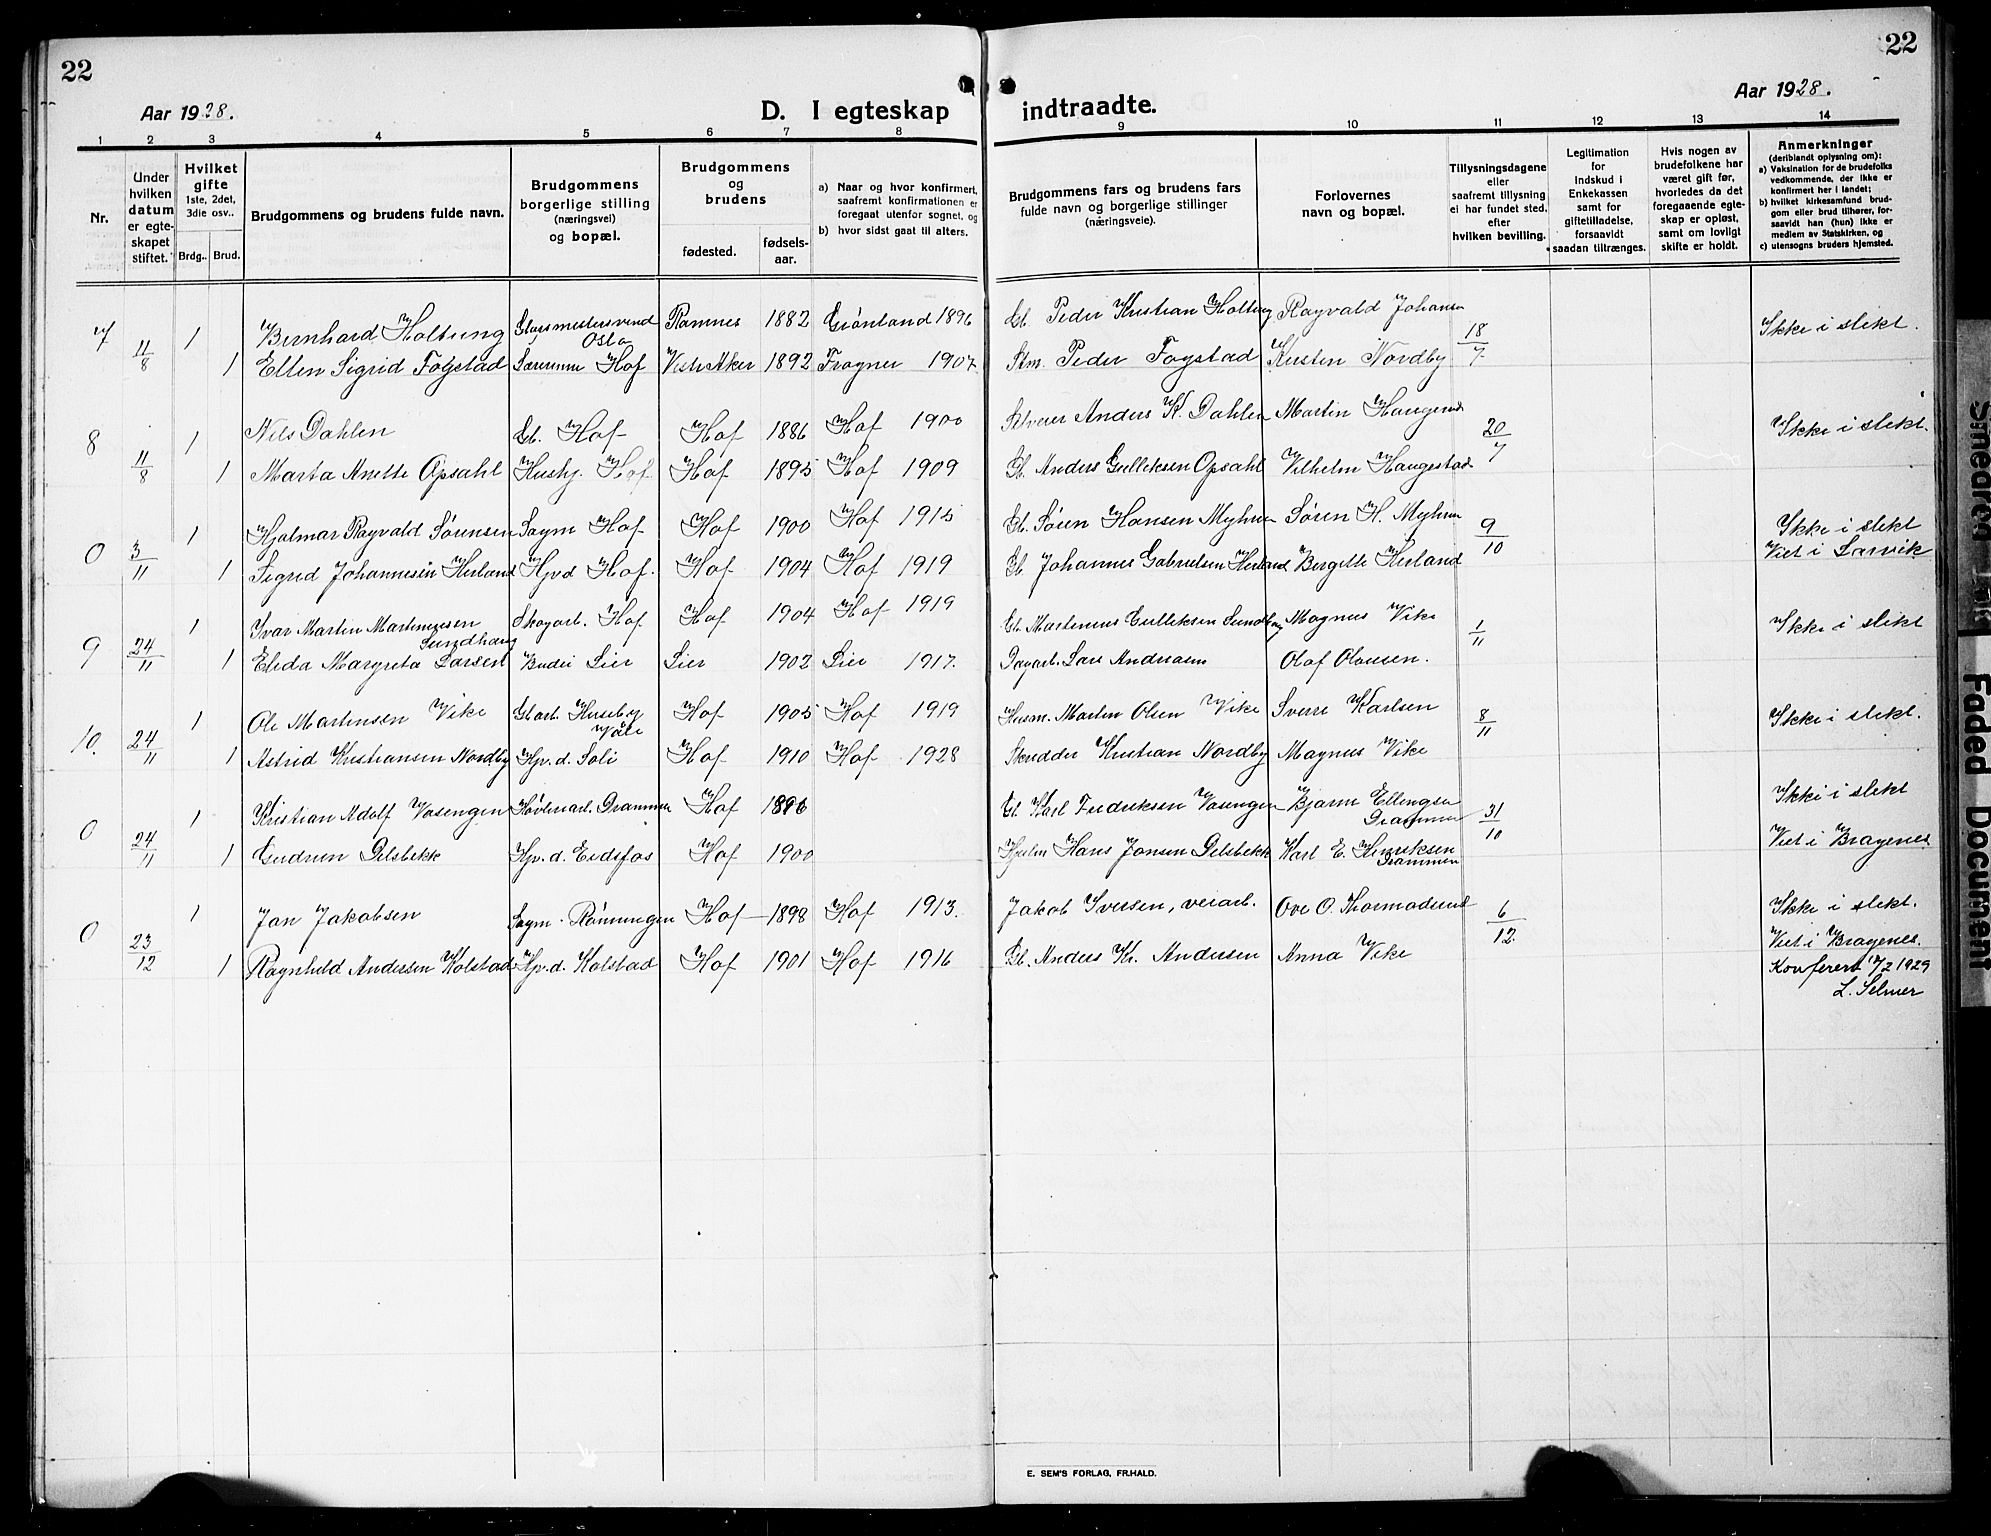 22
22
Aar 1928.
D. I egteskap indtraadte.
Aar 1928.
1 2 3 4 5 6 7 8 9 10 11 12 13 14
Nr.
Under hvilken datum er egteskapet stiftet.
Hvilket gifte 1ste, 2det, 3die osv..
Brdg.. Brud.
Brudgommens og brudens fulde navn.
Brudgommens borgerlige stilling (næringsvei) og bopæl.
Brudgommens og brudens
fødested. fødsels-aar.
a) Naar og hvor konfirmert, saafremt konfirmationen er foregaat utenfor sognet, og
b) hvor sidst gaat til alters.
Brudgommens fars og brudens fars fulde navn og borgerlige stillinger (næringsveie).
Forlovernes navn og bopæl.
Tillysningsdagene eller saafremt tillysning ei har fundet sted, efter hvilken bevilling.
Legitimation for Indskud i Enkekassen samt for giftetilladelse, forsaavidt saadan tiltrænges.
Hvis nogen av brudefolkene har været gift før, hvorledes da det foregaaende egteskap er opløst, samt om lovligt skifte er holdt.
Anmerkninger (deriblandt oplysning om):
a) Vaksination for de brudefolks vedkommende, der ikke er konfirmert her i landet;
b) hvilket kirkesamfund brudgom eller brud tilhører, forsaavidt han (hun) ikke er medlem av Statskirken, og
c) utensogns bruders hjemsted.
7 11/8 1 Bernhard Holtung Glassmestersvend Oslo Ramnes 1882 Grønland 1896 Gb. Peder Kristian Holtung Ragvald Johansen 18/7 Ikke i slekt.
1 Ellen Sigrid Fogstad Hof Vestr. Aker 1892 Frogner 1907. Stm. Peder Fogstad Kirsten Nordby
8 11/8 1 Nils Dahlen Gb. Hof Hof 1886 Hof 1900 Anders K. Dahlen Martin Haugerud 20/7 Ikke i slekt.
1 Marta Anette Opsahl Hushj. Hof Hof 1895 Hof 1909 Gb. Anders Gulliksen Opsahl Vilhelm Haugestad
0 3/11 1 Hjalmar Ragvald Sørensen Sagm Hof Hof 1900 Hof 1915 Gb. Søren Hansen Myhren Søren H. Myhren 9/10 Ikke i slekt
1 Sigrid Johannesen Herland Hjvd Hof. Hof 1904 Hof 1919 Gb. Johannes Gabrielsen Herland Bergitte Herland Viet i Larvik
9 24/11 1 Ivar Martin Martinusen Sundhaug Skogarb. Hof Hof 1904 Hof 1919 Gb. Martinus Gulliksen Sundhaug Magnus Vike 1/11 Ikke i slekt
1 Elida Margreta Larsen Budei Lier Lier 1902 Lier 1917. Dagarb. Lars Andersen Olaf Olausen.
10. 24/11 1 Ole Martinsen Vike Huseby Våle Hof 1905 Hof 1919 Husm. Martin Olsen Vike Sverre Karlsen 8/11 Ikke i slekt.
1 Astrid Kristiansen Nordby Hjv. d. Soli Hof 1910 Hof 1928 Skredder Kristian Nordby Magnus Vike
0 24/11 1 Kristian Adolf Vasengen Høvleriarb. Drammen Hof 1896 Gb. Karl Fredriksen Vasengen Bjarne Ellingsen Drammen 31/10 Ikke i slekt
1 Gudrun Delsbekk Hjv. d. Eidsfos Hof 1900 Hans Jonsen Delsbekk Karl E. Henriksen Drammen Viet i Bragenes
0 23/12 1 Jan Jakobsen Sagm. Rønningen Hof 1898 Hof 1913. Jakob Iversen, veiarb. Ove O. Thormodsrud 6/12. Ikke i slekt.
1 Ragnhild Andersen Kolstad Hjv. d. Kolstad Hof 1901 Hof 1916 Gb. Anders Kr. Andersen Anna Vike Viet i Bragenes.
Konferert 17/2 1929
L. Selmer
E. SEM'S FORLAG, FR.HALD.
Smeared Ink
Faded Document